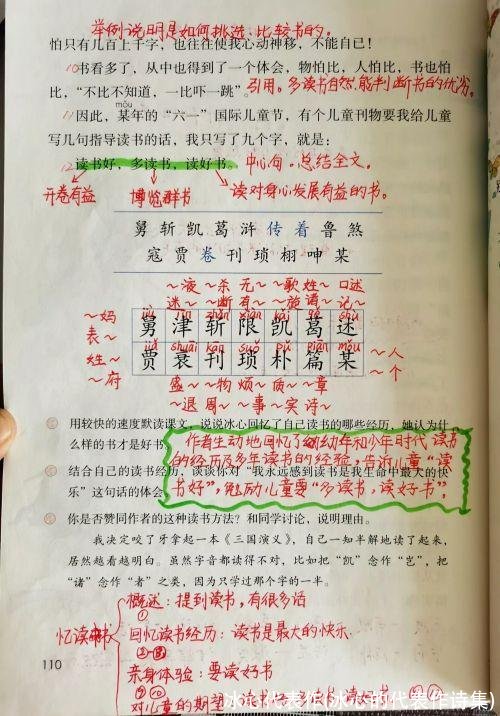 举例说明是如何挑选、比较书的。
怕只有几百上千字，也往往使我心动神移，不能自已！
10书看多了，从中也得到了一个体会，物怕比，人怕比，书也怕
比，“不比不知道，一比吓一跳”。引用。多读书自然能判断书的优劣。
mǒu
11因此，某年的“六一”国际儿童节，有个儿童刊物要我给儿童
写几句指导读书的话，我只写了九个字，就是：
12读书好，多读书，读好书。中心句。总结全文。
开卷有益 博览群书 读对身心发展有益的书。
舅 斩 凯 葛 浒 传 着 鲁 煞
寇 贾 卷 刊 琐 栩 呻 某
～液 ～杀 无～ ～歌 姓～ 口述
迷～ ～断 有～ ～旋 诸～ 记～
～妈 jiù jīn zhǎn xiàn kǎi gě shù
舅 津 斩 限 凯 葛 述
表～
姓～ jiǎ shuāi kān suǒ pǔ piān mǒu
贾 衰 刊 琐 朴 篇 某 ～人
～府 ～个
盛～ ～物 烦～ 质～ ～章
～退 周～ ～事 ～实 诗～
用较快的速度默读课文，说说冰心回忆了自己读书的哪些经历，她认为什
么样的书才是好书
作者生动地回忆了幼年和少年时代读书
的经历及多年读书的经验，告诉儿童“读
书好”，勉励儿童要“多读书，读好书”。
结合自己的读书经历，谈谈你对“我永远感到读书是我生命中最大的快
乐”这句话的体会
你是否赞同作者的这种读书方法？和同学讨论，说明理由。
我决定咬了牙拿起一本《三国演义》，自己一知半解地读了起来，
居然越看越明白。虽然字音都读得不对，比如把“凯”念作“岂”，把
“诸”念作“者”之类，因为只学过那个字的一半。
概述：提到读书，有很多话
①
忆读书 回忆读书经历：读书是最大的快乐
亲身体验：要读好书
110
对儿童的期望
冰心代表作(冰心的代表作诗集)